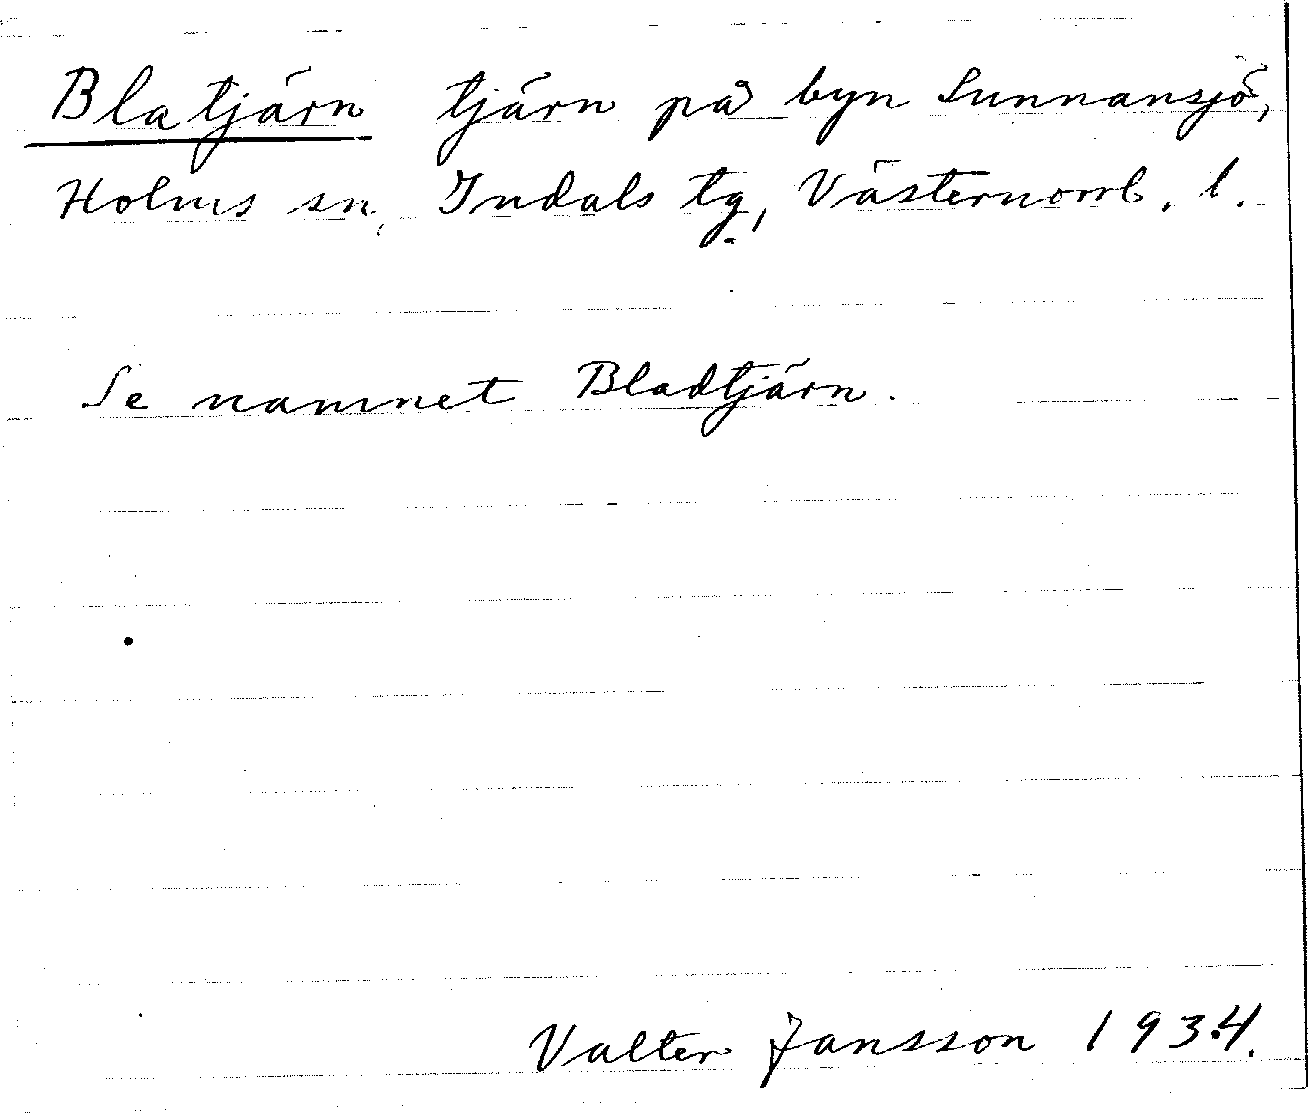 Blatjärn tjärn på byn Sunnansjö,
Holms sn, Indals tg, Västernorrl. l.
Se namnet Bladtjärn.
Valter Jansson 1934.